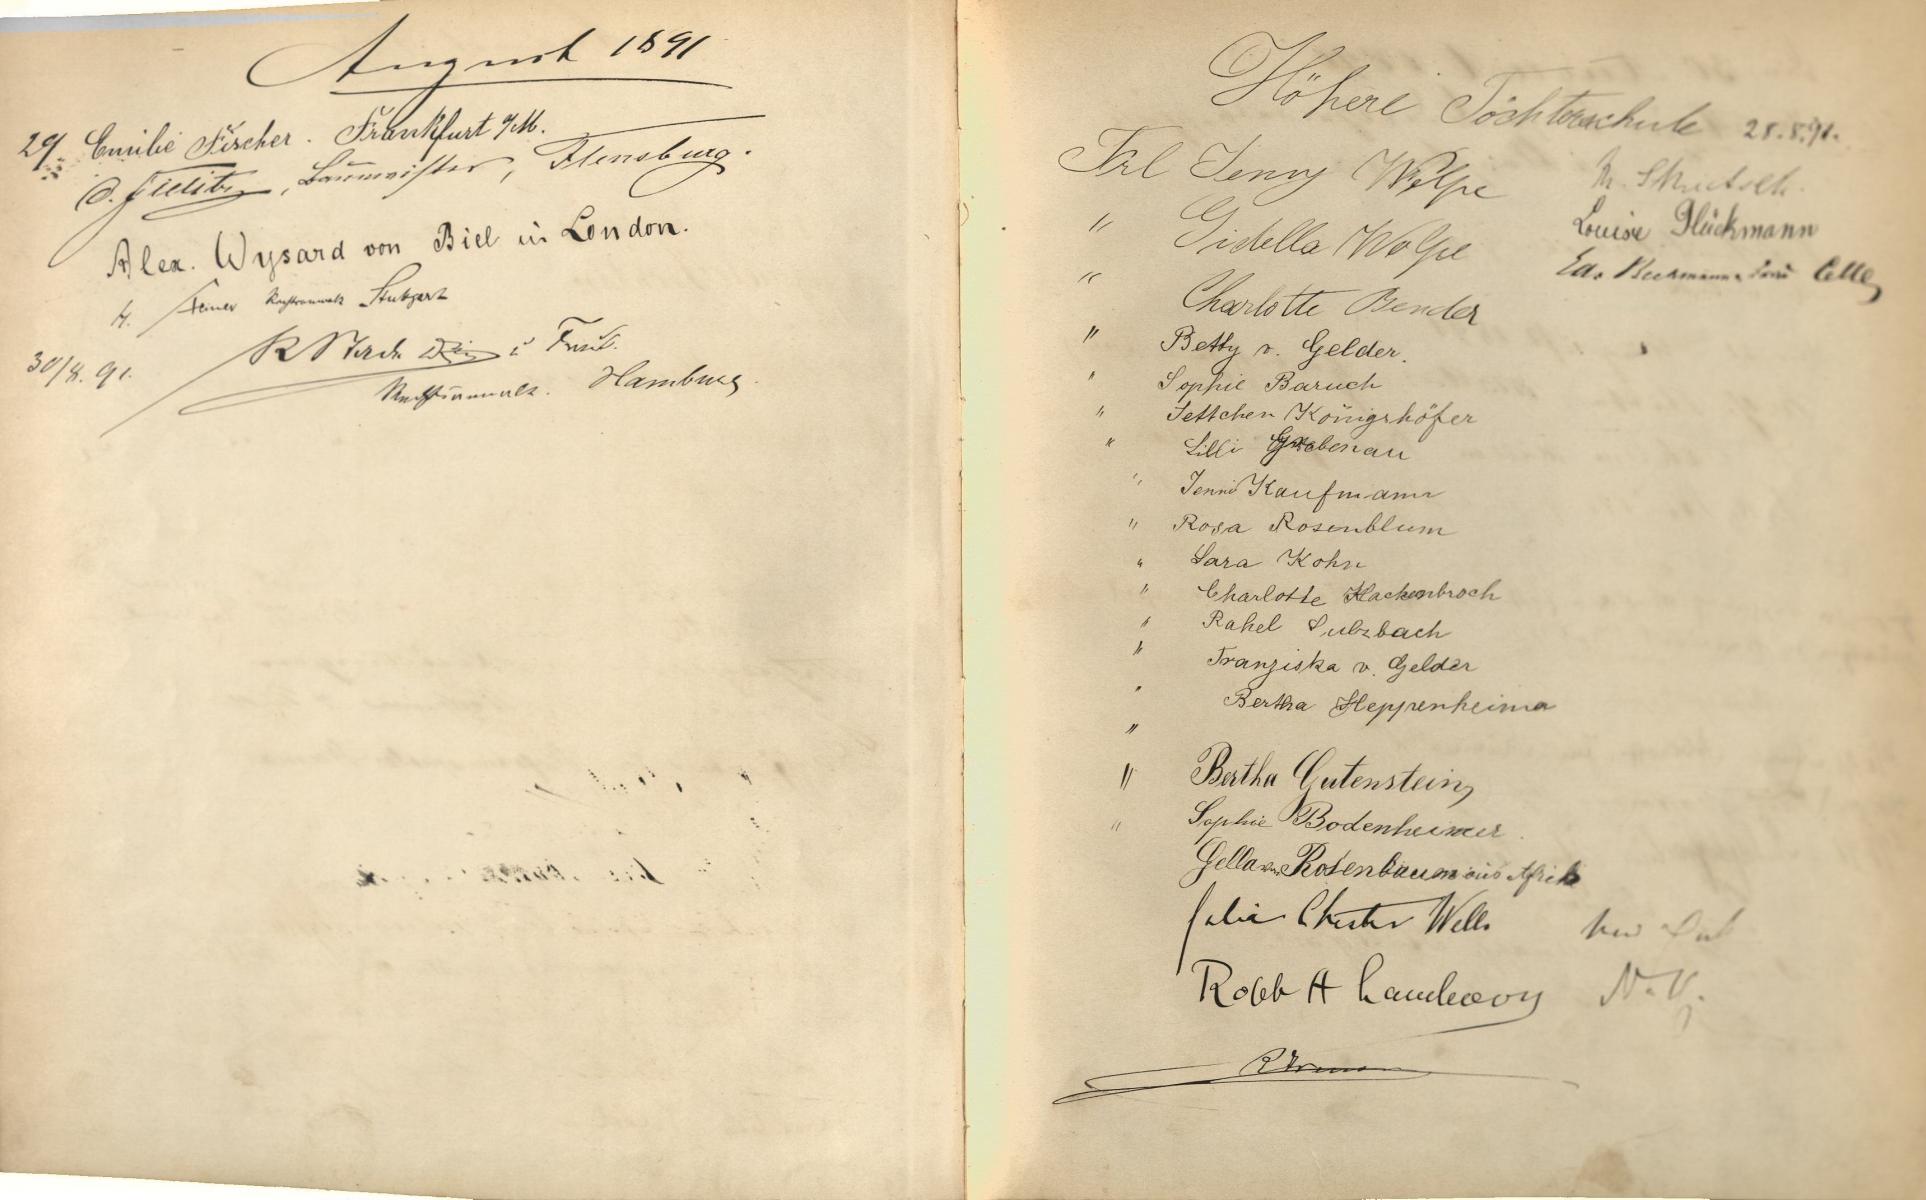 August 1891
29/8. Emilie Fischer. Frankfurt a/M.
Baumeister, Flensburg.
Alex. Wysard von Biel in London.
H. Steiner Rechtsanwalt Stuttgart
30/8. 91. u Frau.
Rechtsanwalt. Hamburg.
Höhere Töchterschule 28.8.91.
Frl Jenny Wolpe
" Gidella Wolpe Louise Glückmann
" Charlotte Bender Celle
" Betty v. Gelder.
" Sophie Baruch
" Jettchen Königshöfer
" Lilli Grabenau
" Jenni Kaufmann
" Rosa Rosenblum
" Sara Kohn
" Charlotte Hackenbroch
" Rahel Sulzbach
" Franziska v. Gelder
" Bertha Heppenheimer
"
" Bertha Gutenstein
" Sophie Bodenheimer.
Gella Rosenbaum aus Afrika
Julia Chester Wells New
Robt H N.Y.